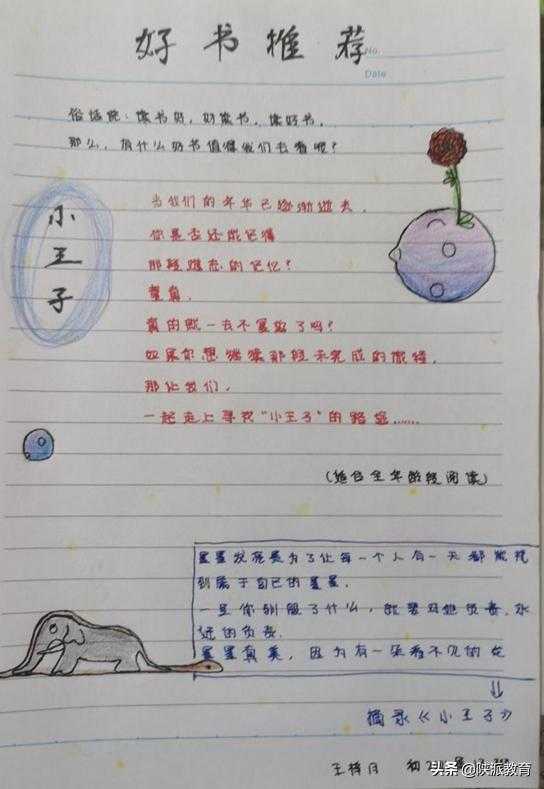 好书推荐
No.
Date
俗话说：读书好，好读书，读好书，
那么，有什么好书值得我们去看呢？
小王子
当我们的年华已逐渐逝去，
你是否还能记得
那段难忘的记忆？
童真，
真的就一去不复返了吗？
如果你想继续那段未完成的旅程，
那让我们，
一起走上寻找“小王子”的路途……
（适合全年龄段阅读）
星星发亮是为了让每一个人有一天都能找
到属于自己的星星。
一旦你驯服了什么，就要对她负责，永
远的负责。
星星真美，因为有一朵看不见的花
摘录《小王子》
王梓月 初
头条 @陕派教育